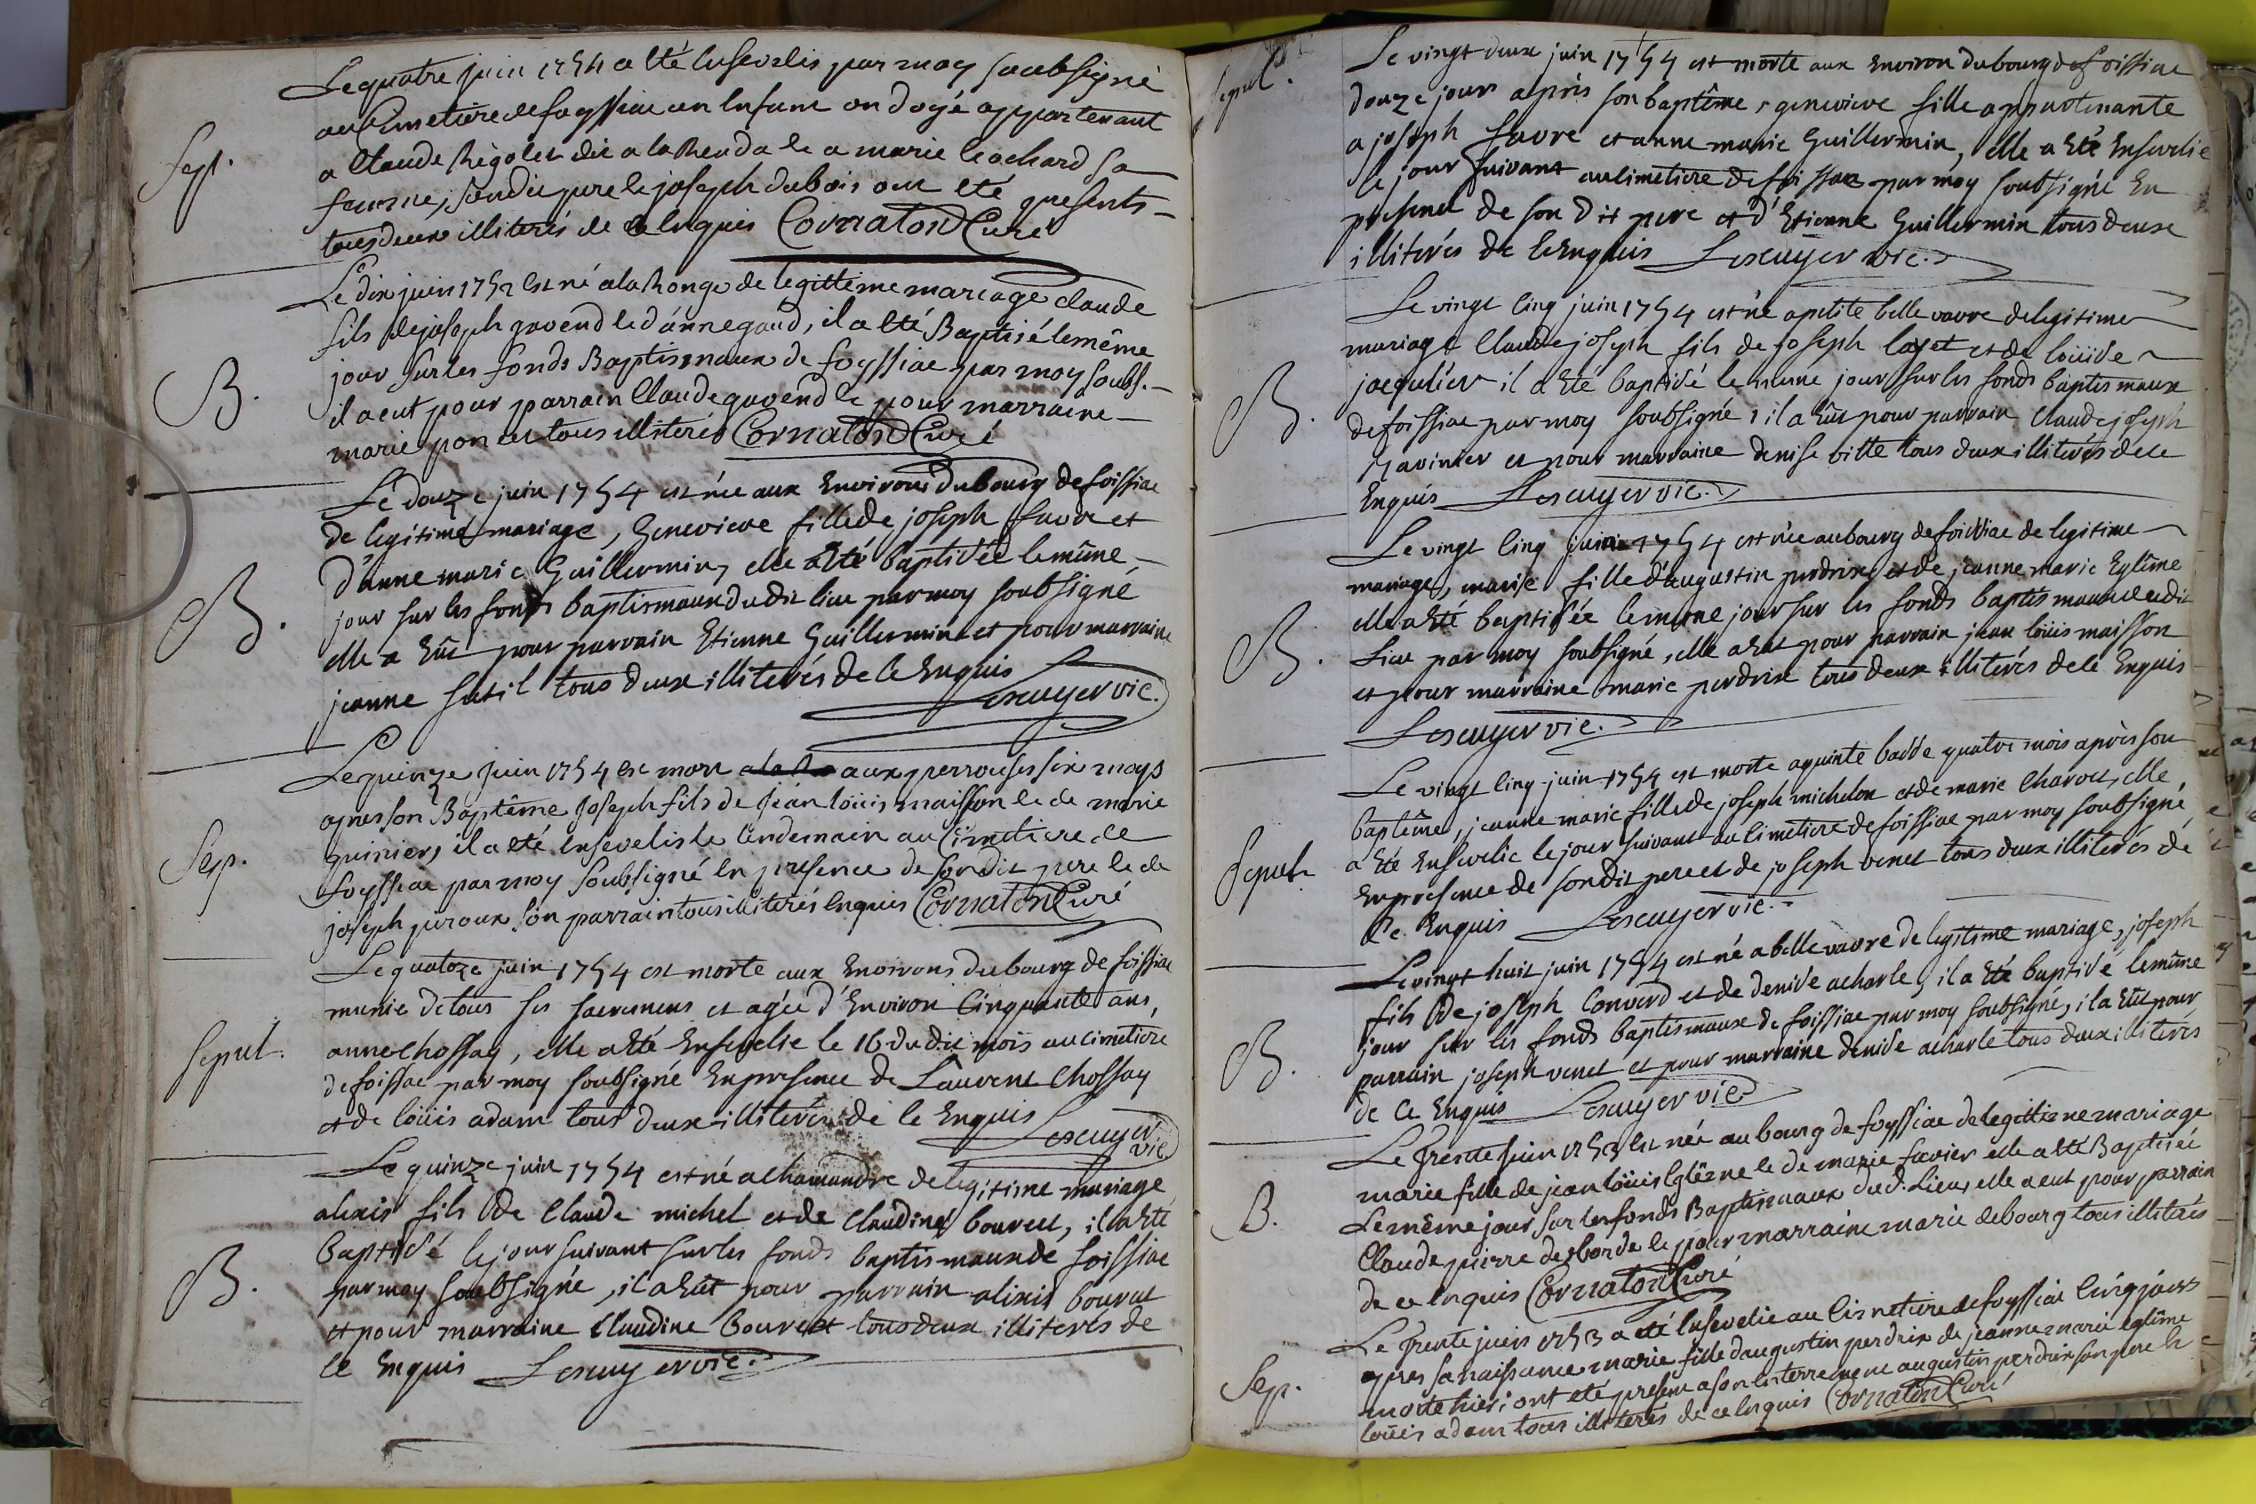 Le quatre juin 1754 a été Ensevelis par moy soubsigné
Sept.
au Cimetiere de foyssiac un Enfant ondoyé appartenant
a Claude Rigolet dit a la Renda le a marie leachard sa
femme, sondit pere le joseph dubois ont été presents
tous deux illiterés de ce Enquis Cornaton Curé
Le dix juin 1752 est né a la Ronge de legittime mariage claude
fils de joseph gavend le d'anne gaud, il a été Baptisé le même
B.
jour sur les fonds Baptismaux de foyssiac par moy soubs.
il a eut pour parrain Claude gavend le pour marraine
marie poncet tous illiterés Cornaton Curé
Le douze juin 1754 est née aux Environs du bourg de foissiac
de legitime mariage, Genevieve fille de joseph favre et
d'anne marie Guillermin, elle a Eté baptisée le même
B.
jour sur les fonds baptismaux dudit lieu par moy soubsigné
elle a Eût pour parrain Etienne Guillermin et pour marraine
jeanne sutil tous deux illiterés de le Enquis
Lescuyer vic.
Le quinze juin 1754 est mort aux perrouses six moys
apres son Baptême Joseph fils de Jean loüis maisson le de marie
Sep.
quinier, il a eté Ensevelis le lendemain au Cimetiere de
foyssiac par moy Soubsigné En presence de son dit pere le de
joseph piroux son parrain tous illiterés Enquis Cornaton Curé
Le quatorze juin 1754 est morte aux Environs du bourg de foissiac
munie de tous ses sacremens et agée d'Environ Cinquante ans,
Sepul.
anne Chossay, elle a Eté Ensevelie le 16 du dit mois au cimetiere
de foissiac par moy soubsigné En presence de Laurent Chossay
et de loüis adam tous deux illiterés de le Enquis
Lescuyer vic
Le quinze juin 1754 est né a chamandre de legitime mariage
alexis fils de Claude michel et de Claudine bouvet, il a Eté
baptisé le jour suivant sur les fonds baptismaux de foissiac
B.
par moy soubsigné, il a Eût pour parrain alexis bouvet
et pour marraine Claudine bouvet tous deux illiterés de
le Enquis Lescuyer vic.
Le vingt deux juin 1754 est morte aux Environ du bourg de foissiac
Sepul.
douze jours après son baptême, genevieve fille appartenante
a joseph favre et anne marie Guillermin, elle a Eté Ensevelie
le jour suivant au Cimetiere de foissiac par moy soubsigné En
presence de son dit pere et d'Etienne Guillermin tous deux
illiterés de le Enquis Lescuyer vic.
Le vingt cinq juin 1754 est né a petite belle vavre de legitime
mariage Claude joseph fils de joseph layet et de loüise
jaequlier il a Eté baptisé le même jour sur les fonds baptismaux
B.
de foissiac par moy soubsigné, il a Eût pour parrain Claude joseph
et pour marraine denise vitte tous deux illiterés de ce
Enquis Lescuyer vic.
Le vingt cinq juin 1754 est née au bourg de foissiac de legitime
mariage, marie fille d'augustin perdrix et de jeanne marie Eglême
B.
elle a Eté baptisée le même jour sur les fonds baptismaux du dit
Lieu par moy soubsigné, elle a Eut pour parrain jean loüis maisson
et pour marraine marie perdrix tous deux illiterés de le Enquis
Lescuyer vic.
Le vingt cinq juin 1754 est morte a pointe basse quatre mois après son
baptême, jeanne marie fille de joseph michelon et de marie Charvet, elle
Sepul.
a Eté Ensevelie le jour suivant au Cimetiere de foissiac par moy soubsigné
En presence de son dit pere et de joseph venet tous deux illiterés de
le Enquis Lescuyer vic.
Le vingt huit juin 1754 est né a belle vavre de legitime mariage, joseph
fils de joseph Convert et de denise acharle, il a Eté baptisé le même
B.
jour sur les fonds baptismaux de foissiac par moy soubsigné, il a Eût pour
parrain joseph venet et pour marraine denise acharle tous deux illiterés
de Ce Enquis Lescuyer vic.
Le trente juin 1753 est née au bourg de foyssiac de legittime mariage
marie fille de jean loüis Eglême le de marie favier elle a eté Baptisée
B.
Le même jour sur les fonds Baptismaux dud. Lieu, elle a eut pour parrain
Claude pierre desborde le pour marraine marie debourg tous illiterés
de ce Enquis Cornaton Curé
Le trente juin 1753 a eté Ensevelie au Cimetiere de foyssiac Cinq jours
apres sa naissance marie fille d'augustin perdrix de jeanne marie eglême
Sep.
morte hier; ont eté present a son Enterrement augustin perdrix son pere le
loüis adam tous illiterés de ce Enquis Cornaton Curé